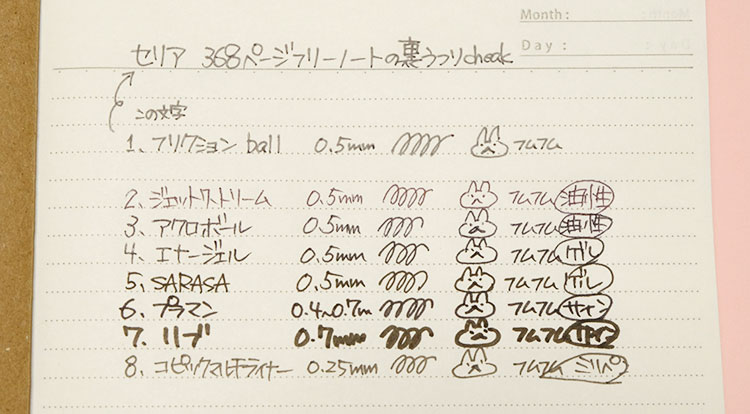 Month :
セリア 368ページフリーノートの裏うつりcheak
Day :
この文字
1、フリクション ball 0.5mm フムフム
2、ジェットストリーム 0.5mm フムフム 油性
3、アクロボール 0.5mm フムフム 油性
4、エナージェル 0.5mm フムフム ゲル
5、SARASA 0.5mm フムフム ゲル
6、プラマン 0.4~0.7m フムフム サイン
7、リブ 0.7mm フムフム サイン
8、コピックマルチライナー 0.25mm フムフム ミリペ